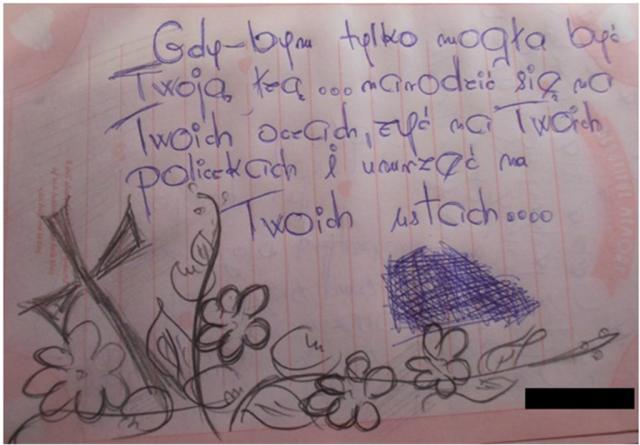 Gdy-bym tylko mogła być
Twoją łzą...narodzić się na
Twoich oczach, żyć na Twoich
policzkach i umrzęć na
Twoich ustach....